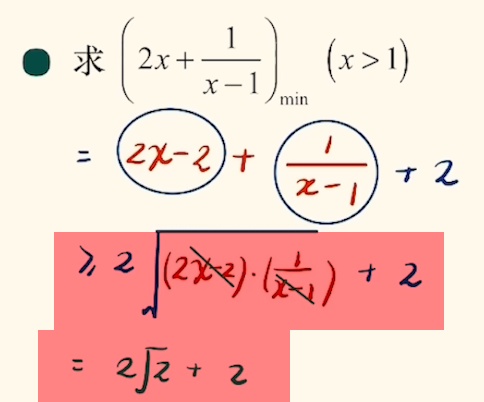 求 (2x + \frac{1}{x-1})_{min} (x > 1)
= 2x-2 + \frac{1}{x-1} + 2
⩾ 2\sqrt{(2x-2)·(\frac{1}{x-1})} + 2
= 2\sqrt{2} + 2